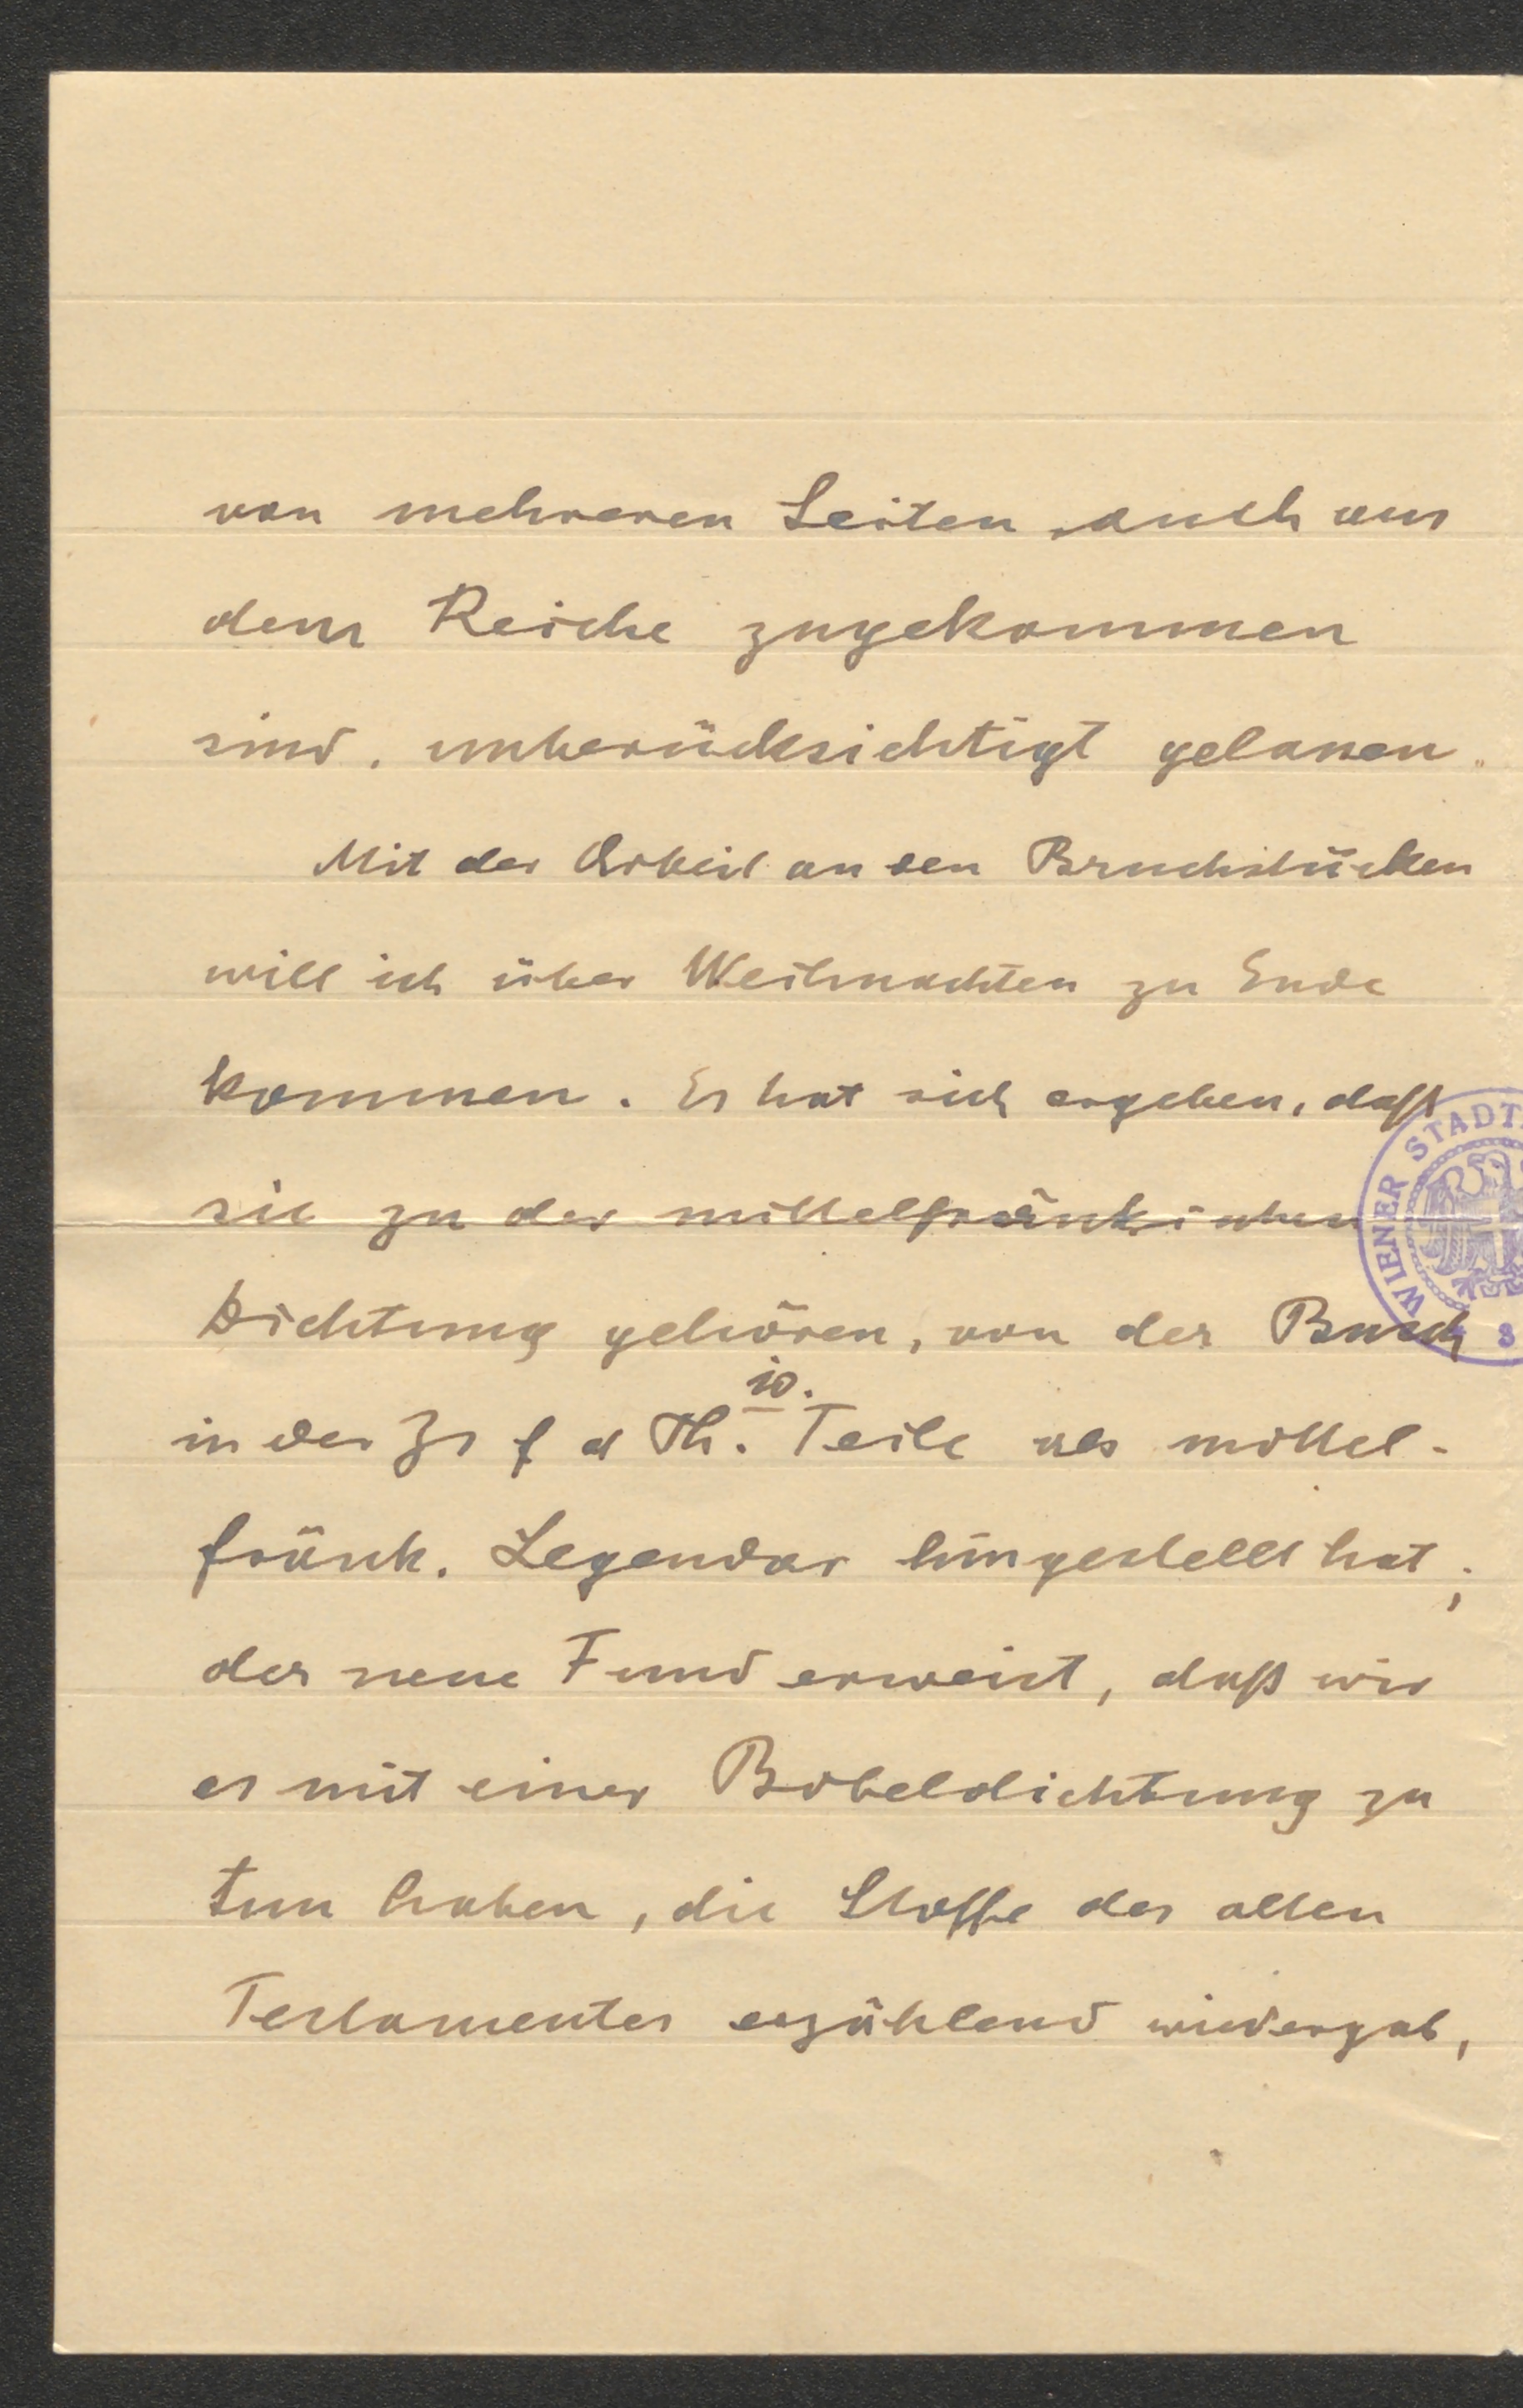 von mehreren Seiten, auch aus
dem Reiche zugekommen
sind, unberücksichtigt gelassen.
Mit der Arbeit an den Bruchstücken
will ich über Weihnachten zu Ende
kommen. Es hat sich ergeben, daß
sie zu der mittelfränkischen
Dichtung gehören, von der Busch
in der Zs f d Ph. 10. Teile als mittel-
fränk. Legendar hingestellt hat;
der neue Fund erweist, daß wir
es mit einer Bibeldichtung zu
tun haben, die Stoffe des alten
Testamentes erzählend wiedergab,
WIENER STADT